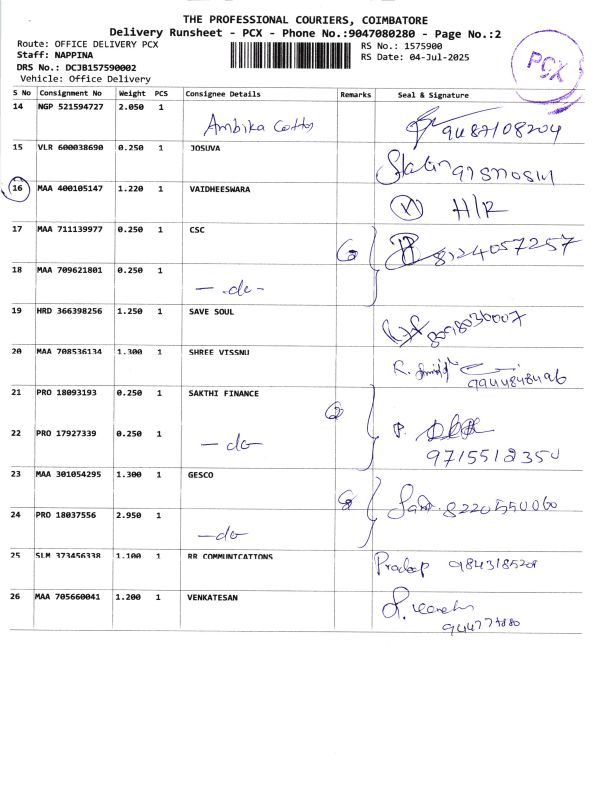 THE PROFESSIONAL COURIERS, COIMBATORE
Delivery Runsheet - PCX - Phone No.:9047080280 - Page No.:2
Route: OFFICE DELIVERY PCX
RS No.: 1575900
Staff: NAPPINA
RS Date: 04-Jul-2025
DRS No.: DCJB157590002
Vehicle: Office Delivery
PCX
S No Consignment No Weight PCS Consignee Details Remarks Seal & Signature
14 NGP 521594727 2.050 1 Ambika 9487108204
15 VLR 600038690 0.250 1 JOSUVA Stalin
16 MAA 400105147 1.220 1 VAIDHEESWARA H/R
17 MAA 711139977 0.250 1 CSC 8124057257
18 MAA 709621801 0.250 1 - do -
19 HRD 366398256 1.250 1 SAVE SOUL 8098030007
20 MAA 708536134 1.300 1 SHREE VISSNU R.
9944848496
21 PRO 18093193 0.250 1 SAKTHI FINANCE
22 PRO 17927339 0.250 1 - do - P.
9715512350
23 MAA 301054295 1.300 1 GESCO 8220550060
24 PRO 18037556 2.950 1 - do -
25 SLM 373456338 1.100 1 RR COMMUNICATIONS Pradeep 9843185208
26 MAA 705660041 1.200 1 VENKATESAN